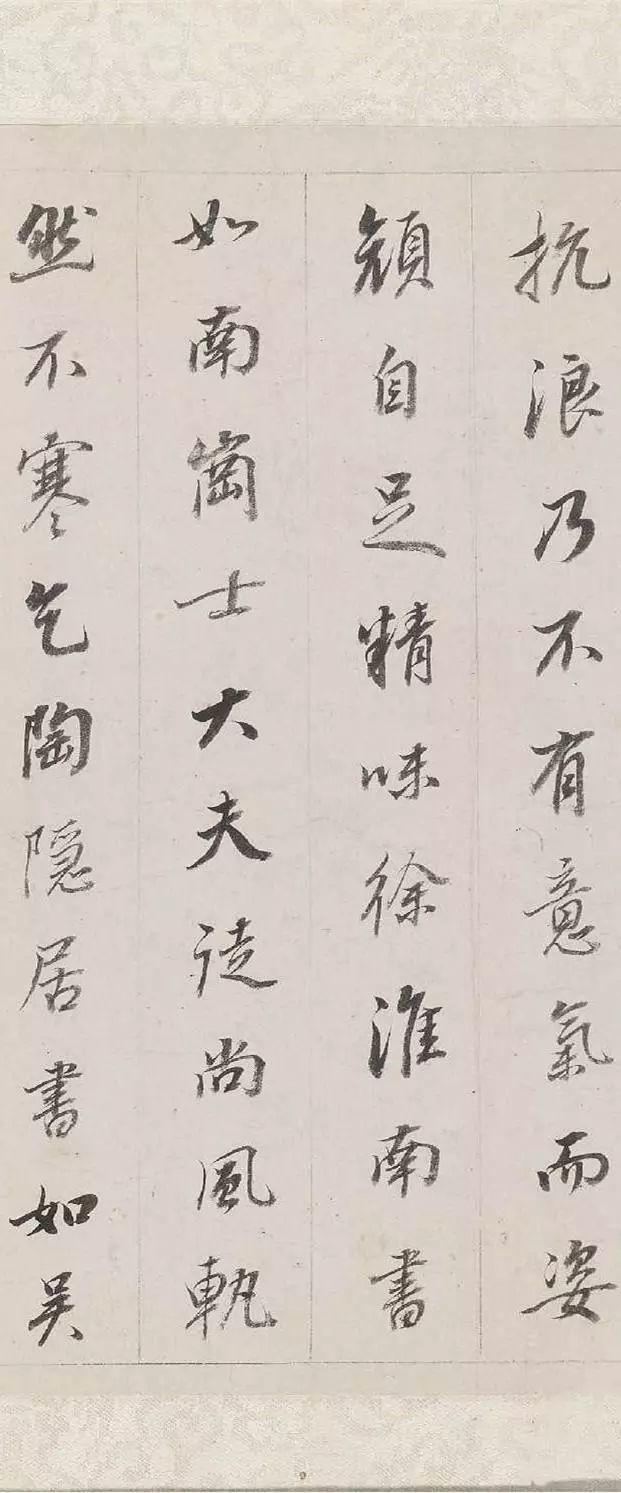 抗浪乃不有意氣而姿
顔自足精味徐淮南書
如南崗士大夫徒尚風軌
然不寒乞陶隱居書如吴